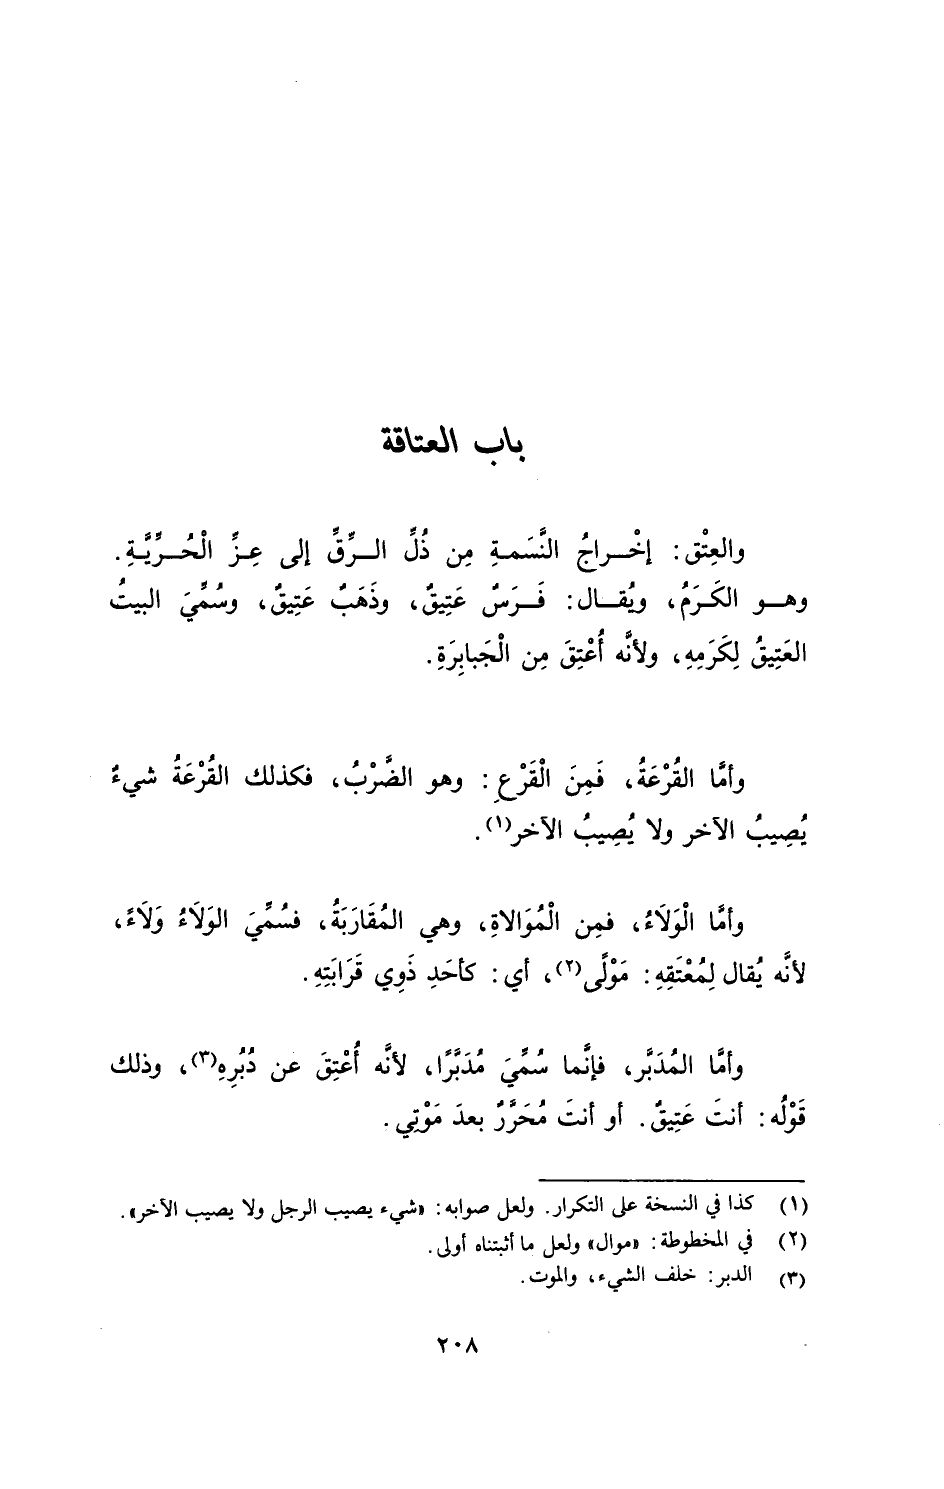 باب العتاقة
والعِتْق: إخْـراجُ النَّسَمةِ مِن ذُلِّ الـرِّقِّ إلى عِـزِّ الْحُـرِّيَّـةِ.
وهـو الكَـرَمُ، ويُقـال: فَـرَسٌ عَتِيقٌ، وذَهَبٌ عَتِيقٌ، وسُمِّيَ البيتُ
العَتِيقُ لِكَرَمِهِ، ولأنَّه أُعْتِقَ مِن الْجَبابِرَةِ.
وأمَّا القُرْعَةُ، فَمِنَ الْقَرْعِ: وهو الضَّرْبُ، فكذلك القُرْعَةُ شيءٌ
يُصِيبُ الآخر ولا يُصِيبُ الآخر(١).
وأمَّا الْوَلَاءُ، فمِن الْمُوَالاةِ، وهي المُقَارَبَةُ، فسُمِّيَ الوَلَاءُ وَلَاءً،
لأنَّه يُقال لِمُعْتَقِهِ: مَوْلًى(٢)، أي: كأحَدِ ذَوِي قَرَابَتِهِ.
وأمَّا المُدَبَّر، فإنَّما سُمِّيَ مُدَبَّرًا، لأنَّه أُعْتِقَ عن دُبُرِهِ(٣)، وذلك
قَوْلُه: أنتَ عَتِيقٌ. أو أنتَ مُحَرَّرٌ بعدَ مَوْتِي.
(١) كذا في النسخة على التكرار. ولعل صوابه: «شيء يصيب الرجل ولا يصيب الآخر».
(٢) في المخطوطة: «موال» ولعل ما أثبتناه أولى.
(٣) الدبر: خلف الشيء، والموت.
٢٠٨